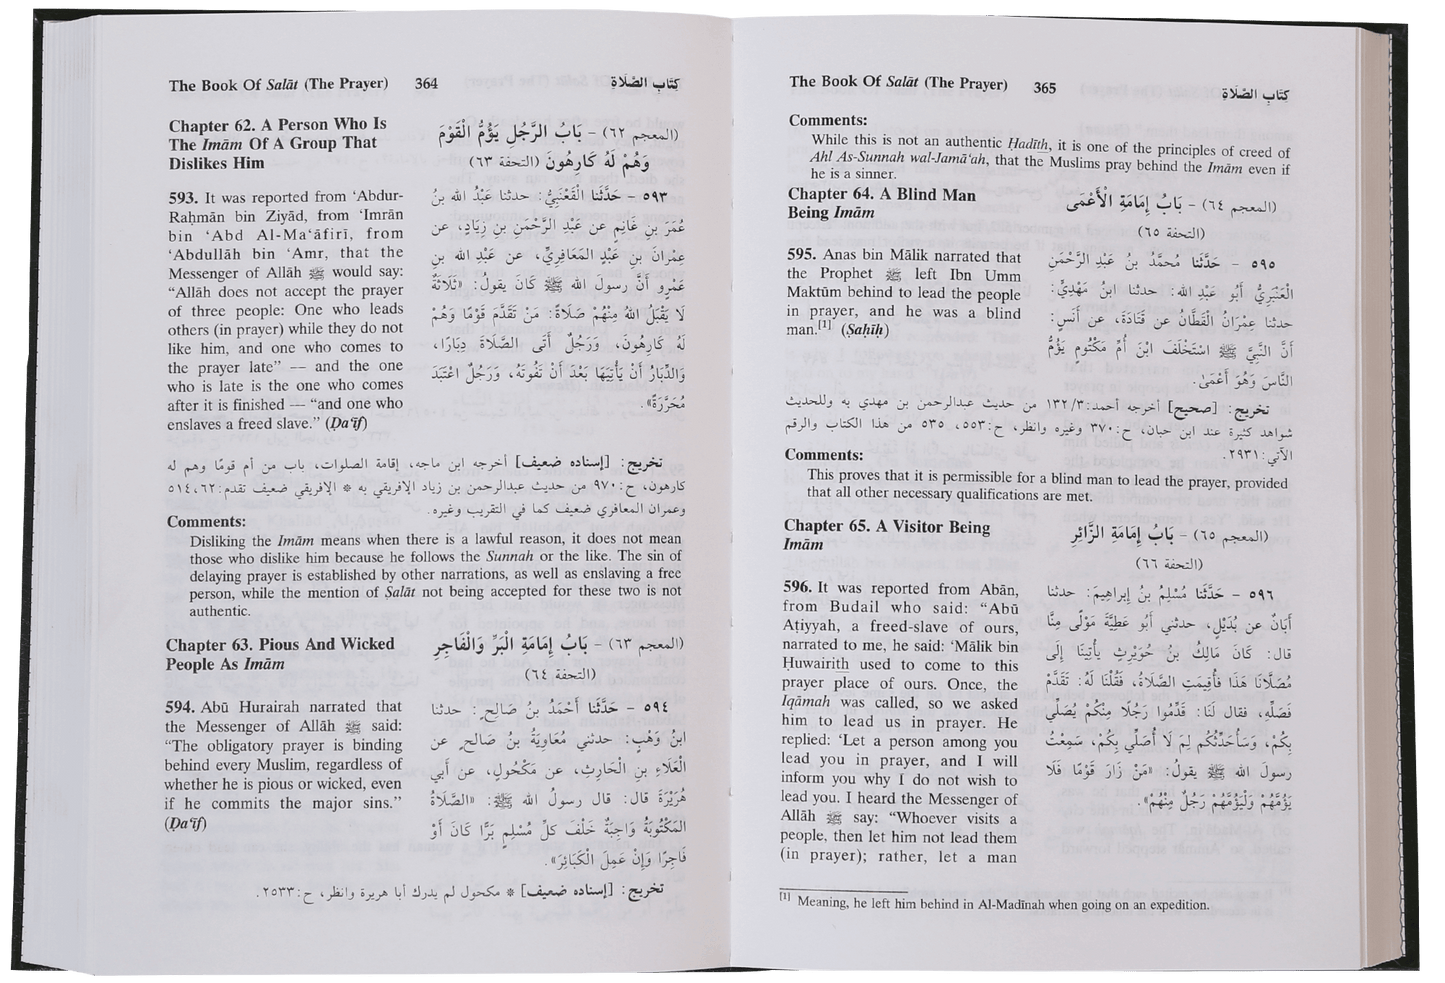 The Book Of Salāt (The Prayer) 364 كتاب الصلاة
Chapter 62. A Person Who Is
The Imām Of A Group That
Dislikes Him
(المعجم ٦٢) - بَابُ الرَّجُلِ يَؤُمُّ الْقَوْمَ
وَهُمْ لَهُ كَارِهُونَ (التحفة ٦٣)
593. It was reported from ‘Abdur-
Raḥmān bin Ziyād, from ‘Imrān
bin ‘Abd Al-Ma‘āfirī, from
‘Abdullāh bin ‘Amr, that the
Messenger of Allāh ﷺ would say:
“Allāh does not accept the prayer
of three people: One who leads
others (in prayer) while they do not
like him, and one who comes to
the prayer late” — and the one
who is late is the one who comes
after it is finished — “and one who
enslaves a freed slave.” (Ḍa‘īf)
٥٩٣ - حَدَّثَنَا الْقَعْنَبِيُّ: حدثنا عَبْدُ الله بنُ
عُمَرَ بنِ غَانِمٍ عن عَبْدِ الرَّحْمَنِ بنِ زِيَادٍ، عن
عِمْرَانَ بنِ عَبْدٍ المَعَافِرِيِّ، عن عَبْدِ الله بنِ
عَمْرٍو أَنَّ رسولَ الله ﷺ كَانَ يقولُ: «ثَلَاثَةٌ
لَا يَقْبَلُ اللهُ مِنْهُمْ صَلَاةً: مَنْ تَقَدَّمَ قَوْمًا وَهُمْ
لَهُ كَارِهُونَ، وَرَجُلٌ أَتَى الصَّلَاةَ دِبَارًا،
وَالدِّبَارُ أَنْ يَأْتِيَهَا بَعْدَ أَنْ تَفُوتَهُ، وَرَجُلٌ اعْتَبَدَ
مُحَرَّرَةً».
تخريج: [إسناده ضعيف] أخرجه ابن ماجه، إقامة الصلوات، باب من أم قومًا وهم له
كارهون، ح: ٩٧٠ من حديث عبدالرحمن بن زياد الإفريقي به * الإفريقي ضعيف تقدم: ٥١٤،٦٢
وعمران المعافري ضعيف كما في التقريب وغيره.
Comments:
Disliking the Imām means when there is a lawful reason, it does not mean
those who dislike him because he follows the Sunnah or the like. The sin of
delaying prayer is established by other narrations, as well as enslaving a free
person, while the mention of Ṣalāt not being accepted for these two is not
authentic.
Chapter 63. Pious And Wicked
People As Imām
(المعجم ٦٣) - بَابُ إِمَامَةِ الْبَرِّ وَالْفَاجِرِ
(التحفة ٦٤)
594. Abū Hurairah narrated that
the Messenger of Allāh ﷺ said:
“The obligatory prayer is binding
behind every Muslim, regardless of
whether he is pious or wicked, even
if he commits the major sins.”
(Ḍa‘īf)
٥٩٤ - حَدَّثَنَا أَحْمَدُ بنُ صَالِحٍ: حدثنا
ابنُ وَهْبٍ: حدثني مُعَاوِيَةُ بنُ صَالحٍ عن
الْعَلَاءِ بنِ الْحَارِثِ، عن مَكْحُولٍ، عن أَبي
هُرَيْرَةَ قال: قال رسولُ الله ﷺ: «الصَّلَاةُ
المَكْتُوبَةُ وَاجِبَةٌ خَلْفَ كلِّ مُسْلِمٍ بَرًّا كَانَ أَوْ
فَاجِرًا وَإِنْ عَمِلَ الْكَبَائِرَ».
تخريج: [إسناده ضعيف] * مكحول لم يدرك أبا هريرة وانظر، ح: ٢٥٣٣.
The Book Of Salāt (The Prayer) 365 كتاب الصلاة
Comments:
While this is not an authentic Ḥadīth, it is one of the principles of creed of
Ahl As-Sunnah wal-Jamā‘ah, that the Muslims pray behind the Imām even if
he is a sinner.
Chapter 64. A Blind Man
Being Imām
(المعجم ٦٤) - بَابُ إِمَامَةِ الْأَعْمَى
(التحفة ٦٥)
595. Anas bin Mālik narrated that
the Prophet ﷺ left Ibn Umm
Maktūm behind to lead the people
in prayer, and he was a blind
man.[1] (Ṣaḥīḥ)
٥٩٥ - حَدَّثَنا مُحمَّدُ بنُ عَبْدِ الرَّحْمَنِ
الْعَنْبَرِيُّ أَبُو عَبْدِ الله: حدثنا ابنُ مَهْدِيٍّ:
حدثنا عِمْرَانُ الْقَطَّانُ عن قَتَادَةَ، عن أَنَسٍ:
أَنَّ النَّبيَّ ﷺ اسْتَخْلَفَ ابْنَ أُمِّ مَكْتُومٍ يَؤُمُّ
النَّاسَ وَهُوَ أَعْمَى.
تخريج: [صحيح] أخرجه أحمد: ٣/ ١٣٢ من حديث عبدالرحمن بن مهدي به وللحديث
شواهد كثيرة عند ابن حبان، ح: ٣٧٠ وغيره وانظر، ح: ٥٥٣، ٥٣٥ من هذا الكتاب والرقم
الآتي: ٢٩٣١.
Comments:
This proves that it is permissible for a blind man to lead the prayer, provided
that all other necessary qualifications are met.
Chapter 65. A Visitor Being
Imām
(المعجم ٦٥) - بَابُ إِمَامَةِ الزَّائِرِ
(التحفة ٦٦)
596. It was reported from Abān,
from Budail who said: “Abū
Aṭiyyah, a freed-slave of ours,
narrated to me, he said: ‘Mālik bin
Ḥuwairith used to come to this
prayer place of ours. Once, the
Iqāmah was called, so we asked
him to lead us in prayer. He
replied: ‘Let a person among you
lead you in prayer, and I will
inform you why I do not wish to
lead you. I heard the Messenger of
Allāh ﷺ say: “Whoever visits a
people, then let him not lead them
(in prayer); rather, let a man
٥٩٦ - حَدَّثَنَا مُسْلِمُ بنُ إِبراهِيمَ: حدثنا
أَبَانُ عن بُدَيْلٍ، حدثني أَبو عَطِيَّةَ مَوْلًى مِنَّا
قال: كَانَ مَالِكُ بنُ حُوَيْرِثٍ يأْتِينَا إِلَى
مُصَلَّانَا هَذَا فَأُقِيمَتِ الصَّلَاةُ، فَقُلْنَا لَهُ: تَقَدَّمْ
فَصَلِّهِ، فقال لَنَا: قَدِّمُوا رَجُلًا مِنْكُم يُصَلِّي
بِكُمْ، وَسَأُحَدِّثُكُم لِمَ لَا أُصَلِّي بِكُم، سَمِعْتُ
رسولَ الله ﷺ يقولُ: «مَنْ زَارَ قَوْمًا فَلَا
يَؤُمَّهُمْ وَلْيَؤُمَّهُمْ رَجُلٌ مِنْهُمْ».
[1] Meaning, he left him behind in Al-Madīnah when going on an expedition.